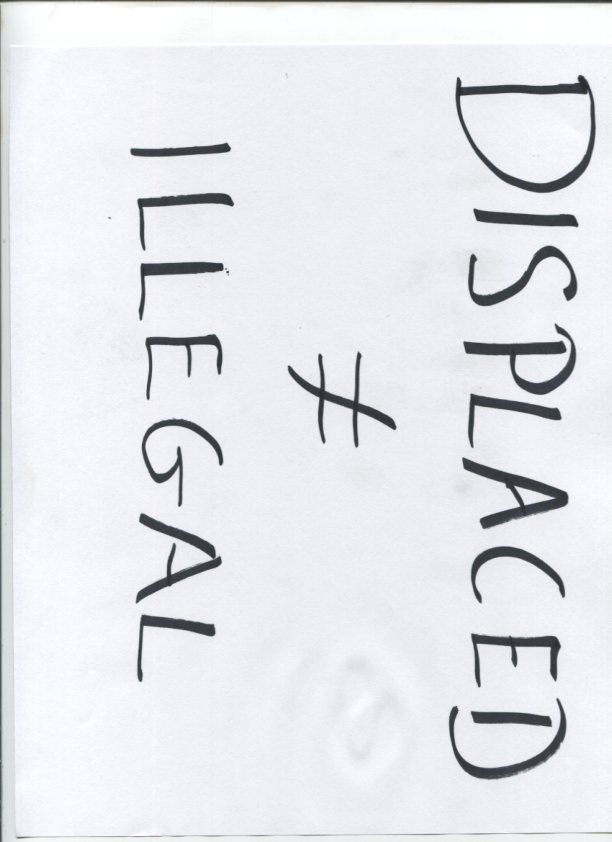 DISPLACED
≠
ILLEGAL